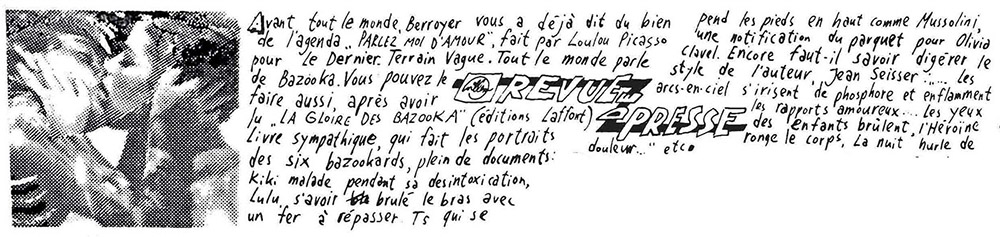 Avant tout le monde, Berroyer vous a déjà dit du bien
de l'agenda "PARLEZ MOI D'AMOUR", fait par Loulou Picasso
pour "Le Dernier Terrain Vague. Tout le monde parle
de Bazooka. Vous pouvez le
faire aussi, après avoir
lu "LA GLOIRE DES BAZOOKA" (éditions Laffont)
Livre sympathique, qui fait les portraits
des six bazookards, plein de documents:
Kiki malade pendant sa desintoxication,
Lulu, s'avoir brulé le bras avec
un fer à répasser. Ts qui se
REVUE
PRESSE
pend les pieds en haut comme Mussolini,
une notification du parquet pour Olivia
clavel. Encore faut-il savoir digérer le
style de l'auteur, Jean Seisser: .... Les
arcs-en-ciel s'irisent de phosphore et enflamment
les rapports amoureux.... Les yeux
des enfants brûlent, l'Héroïne
ronge le corps, La nuit hurle de
douleur..." etc.